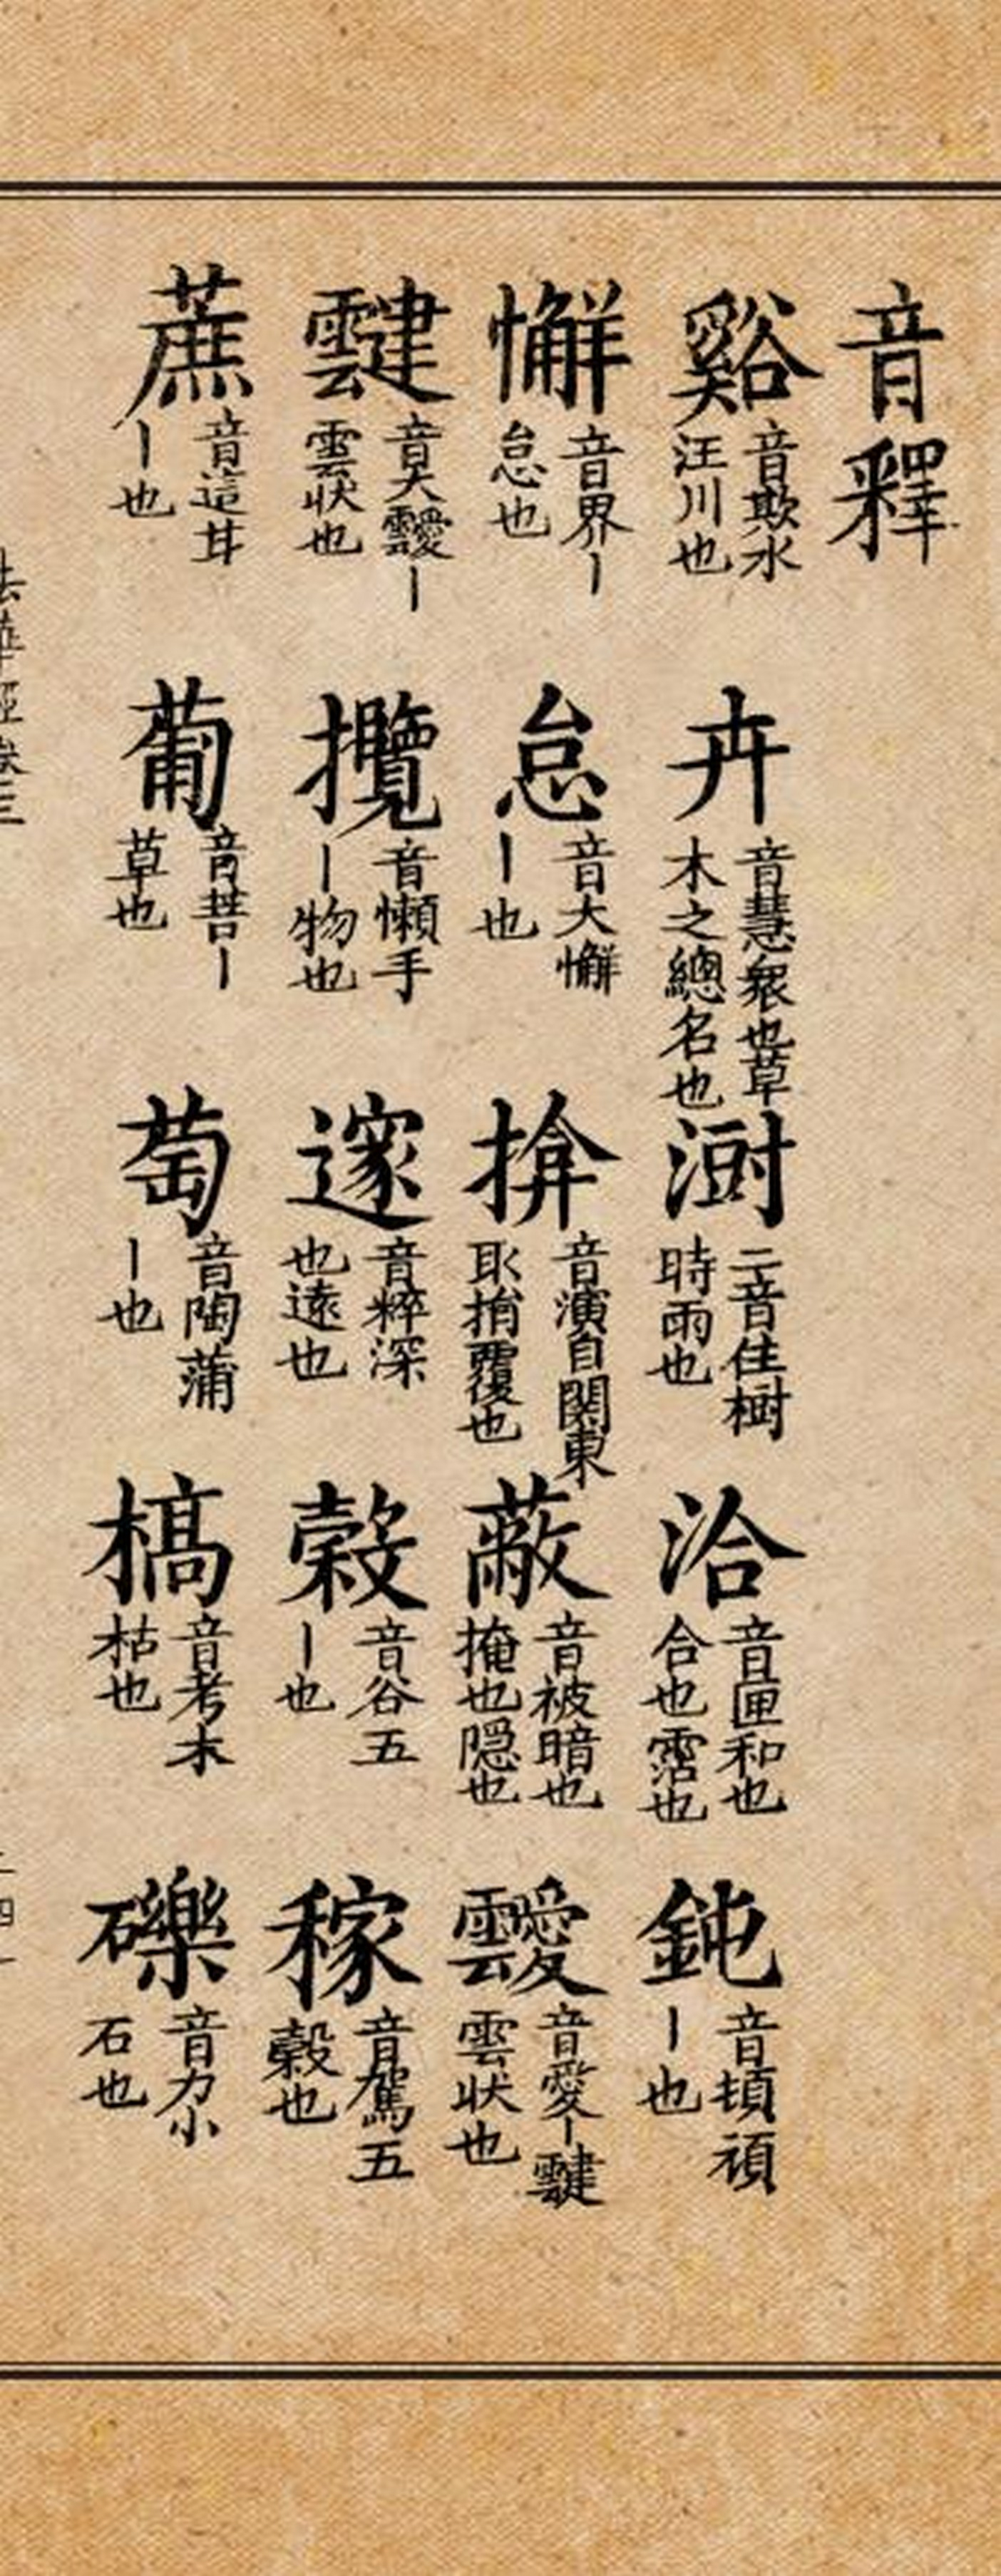 音釋
谿音欺水汪川也 卉音慧衆也草木之總名也 澍二音住樹時雨也 洽音匣和也合也霑也 鈍音頓頑丨也
懈音界丨怠也 怠音大懈丨也 揜音演自関東取揜覆也 蔽音被暗也掩也隠也 靉音愛丨靆雲状也
靆音大靉丨雲状也 攬音懶手丨物也 邃音粹深也遠也 穀音谷五丨也 稼音駕五穀也
蔗音這甘丨也 葡音菩丨草也 萄音陶蒲丨也 槁音考木枯也 礫音力小石也
法華經卷三